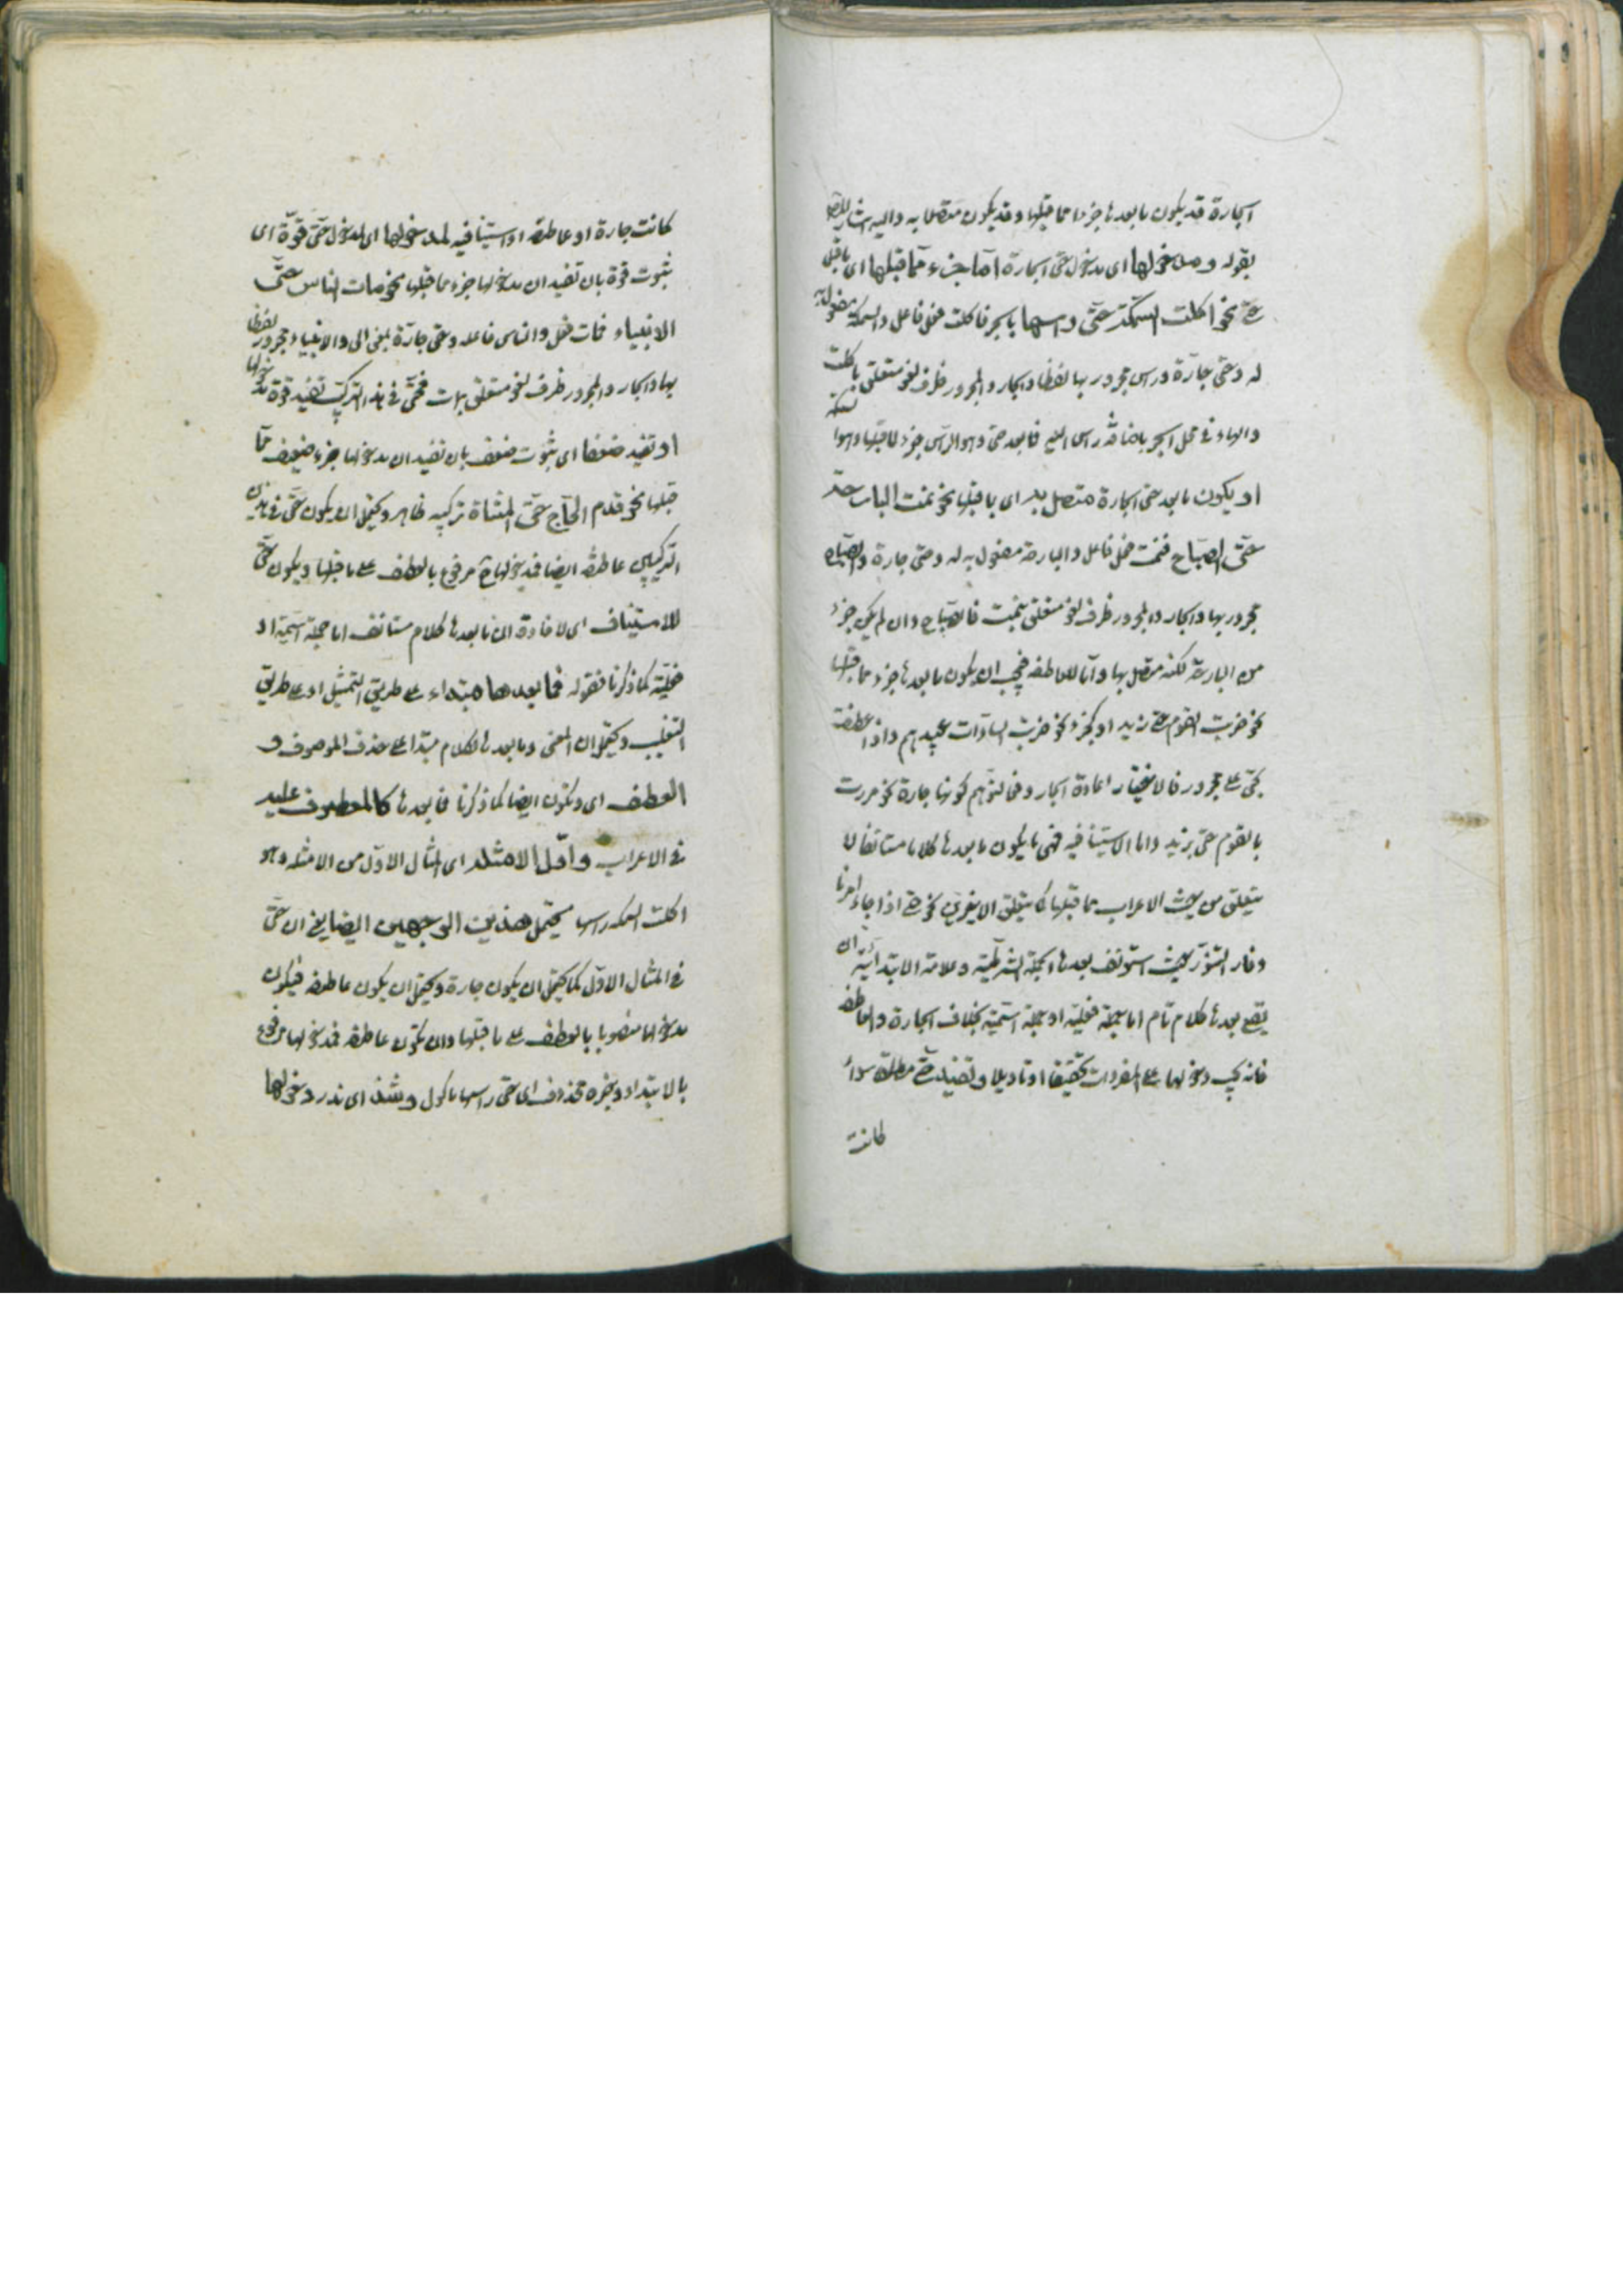 الجارة قد يكون ما بعدها جزءا مما قبلها وقد يكون متصلا به واليه اشار المص
بقوله ومدخولها اى مدخول حتى الجارة اما جزء مما قبلها اى ما قبل
حتى نحو اكلت السمكة حتى راسها بالجر فاكلت فعل فاعل والسمكة مفعول به
له وحتى جارة وراس مجرور بها لفظا والجار والمجرور ظرف لغو متعلق باكلت
والهاء فى محل الجر باضافة راس اليه فما بعد حتى وهو الراس جزء لما قبلها وهو السمكة
او يكون ما بعد حتى الجارة متصل به اى بما قبلها نحو نمت البارحة
حتى الصباح فنمت فعل فاعل والبارحة مفعول به له وحتى جارة والصباح
مجرور بها والجار والمجرور ظرف لغو متعلق بنمت فالصباح وان لم يكن جزء
من البارحة لكنه متصل بها واما العاطفة فيجب ان يكون ما بعدها جزء مما قبلها
نحو ضربت القوم حتى زيد او كجزء نحو ضربت السادات حتى عبيدهم واذا عطفت
بحتى على مجرور فالاختيار اعادة الجار دفعا لتوهم كونها جارة نحو مررت
بالقوم حتى بزيد واما الاستينافيه فهى ما يكون ما بعدها كلاما مستانفا لا
يتعلق من حيث الاعراب بما قبلها كما يتعلق الاخيرين نحو حتى اذا جاء امرنا
وفار التنور بحيث استونف بعدها الجملة الشرطية وعلامة الابتدائية ان
يقع بعدها كلام تام اما جملة فعلية او جملة اسمية بخلاف الجارة والعاطفة
فانه يجب دخولها على المفردات تحقيقا او تاويلا وتفيد حتى مطلقا سواء
كانت
كانت جارة او عاطفة او استينافيه لمدخولها اى لمدخول حتى قوة اى
ثبوت قوة بان تفيد ان مدخولها جزء مما قبلها نحو مات الناس حتى
الانبياء فمات فعل والناس فاعله وحتى جارة بمعنى الى والانبياء مجرور لفظا
بها والجار والمجرور ظرف لغو متعلق بمات فحتى فى هذا التركيب تفيد قوة مدخولها
او تفيد ضعفا اى ثبوت ضعف بان تفيد ان مدخولها جزء ضعيف مما
قبلها نحو قدم الحاج حتى المشاة تركيبه ظاهر ويحتمل ان يكون حتى فى هذين
التركيبين عاطفة ايضا فمدخولها ح مرفوع بالعطف على ما قبلها ويكون حتى
للاستيناف اى لافادة ان ما بعدها كلام مستانف اما جملة اسمية او
فعلية كما ذكرنا فقوله فما بعدها مبتداء على طريق التمثيل او على طريق
التغليب ويحتمل ان المعنى وما بعدها كلام مبتدا على حذف الموصوف و
العطف اى وتكون ايضا كما ذكرنا فما بعدها كالمعطوف عليه
فى الاعراب واول الامثلة اى المثال الاول من الامثله وهو
اكلت السمكه راسها يحتمل هذين الوجهين ايضا يعنى ان حتى
فى المثال الاول كما يحتمل ان يكون جارة ويحتمل ان يكون عاطفه فيكون
مدخولها منصوبا بالعطف على ما قبلها وان تكون عاطفه فمدخولها مرفوع
بالابتداء وخبره محذوف اى حتى راسها ماكول وشذ اى ندر دخولها